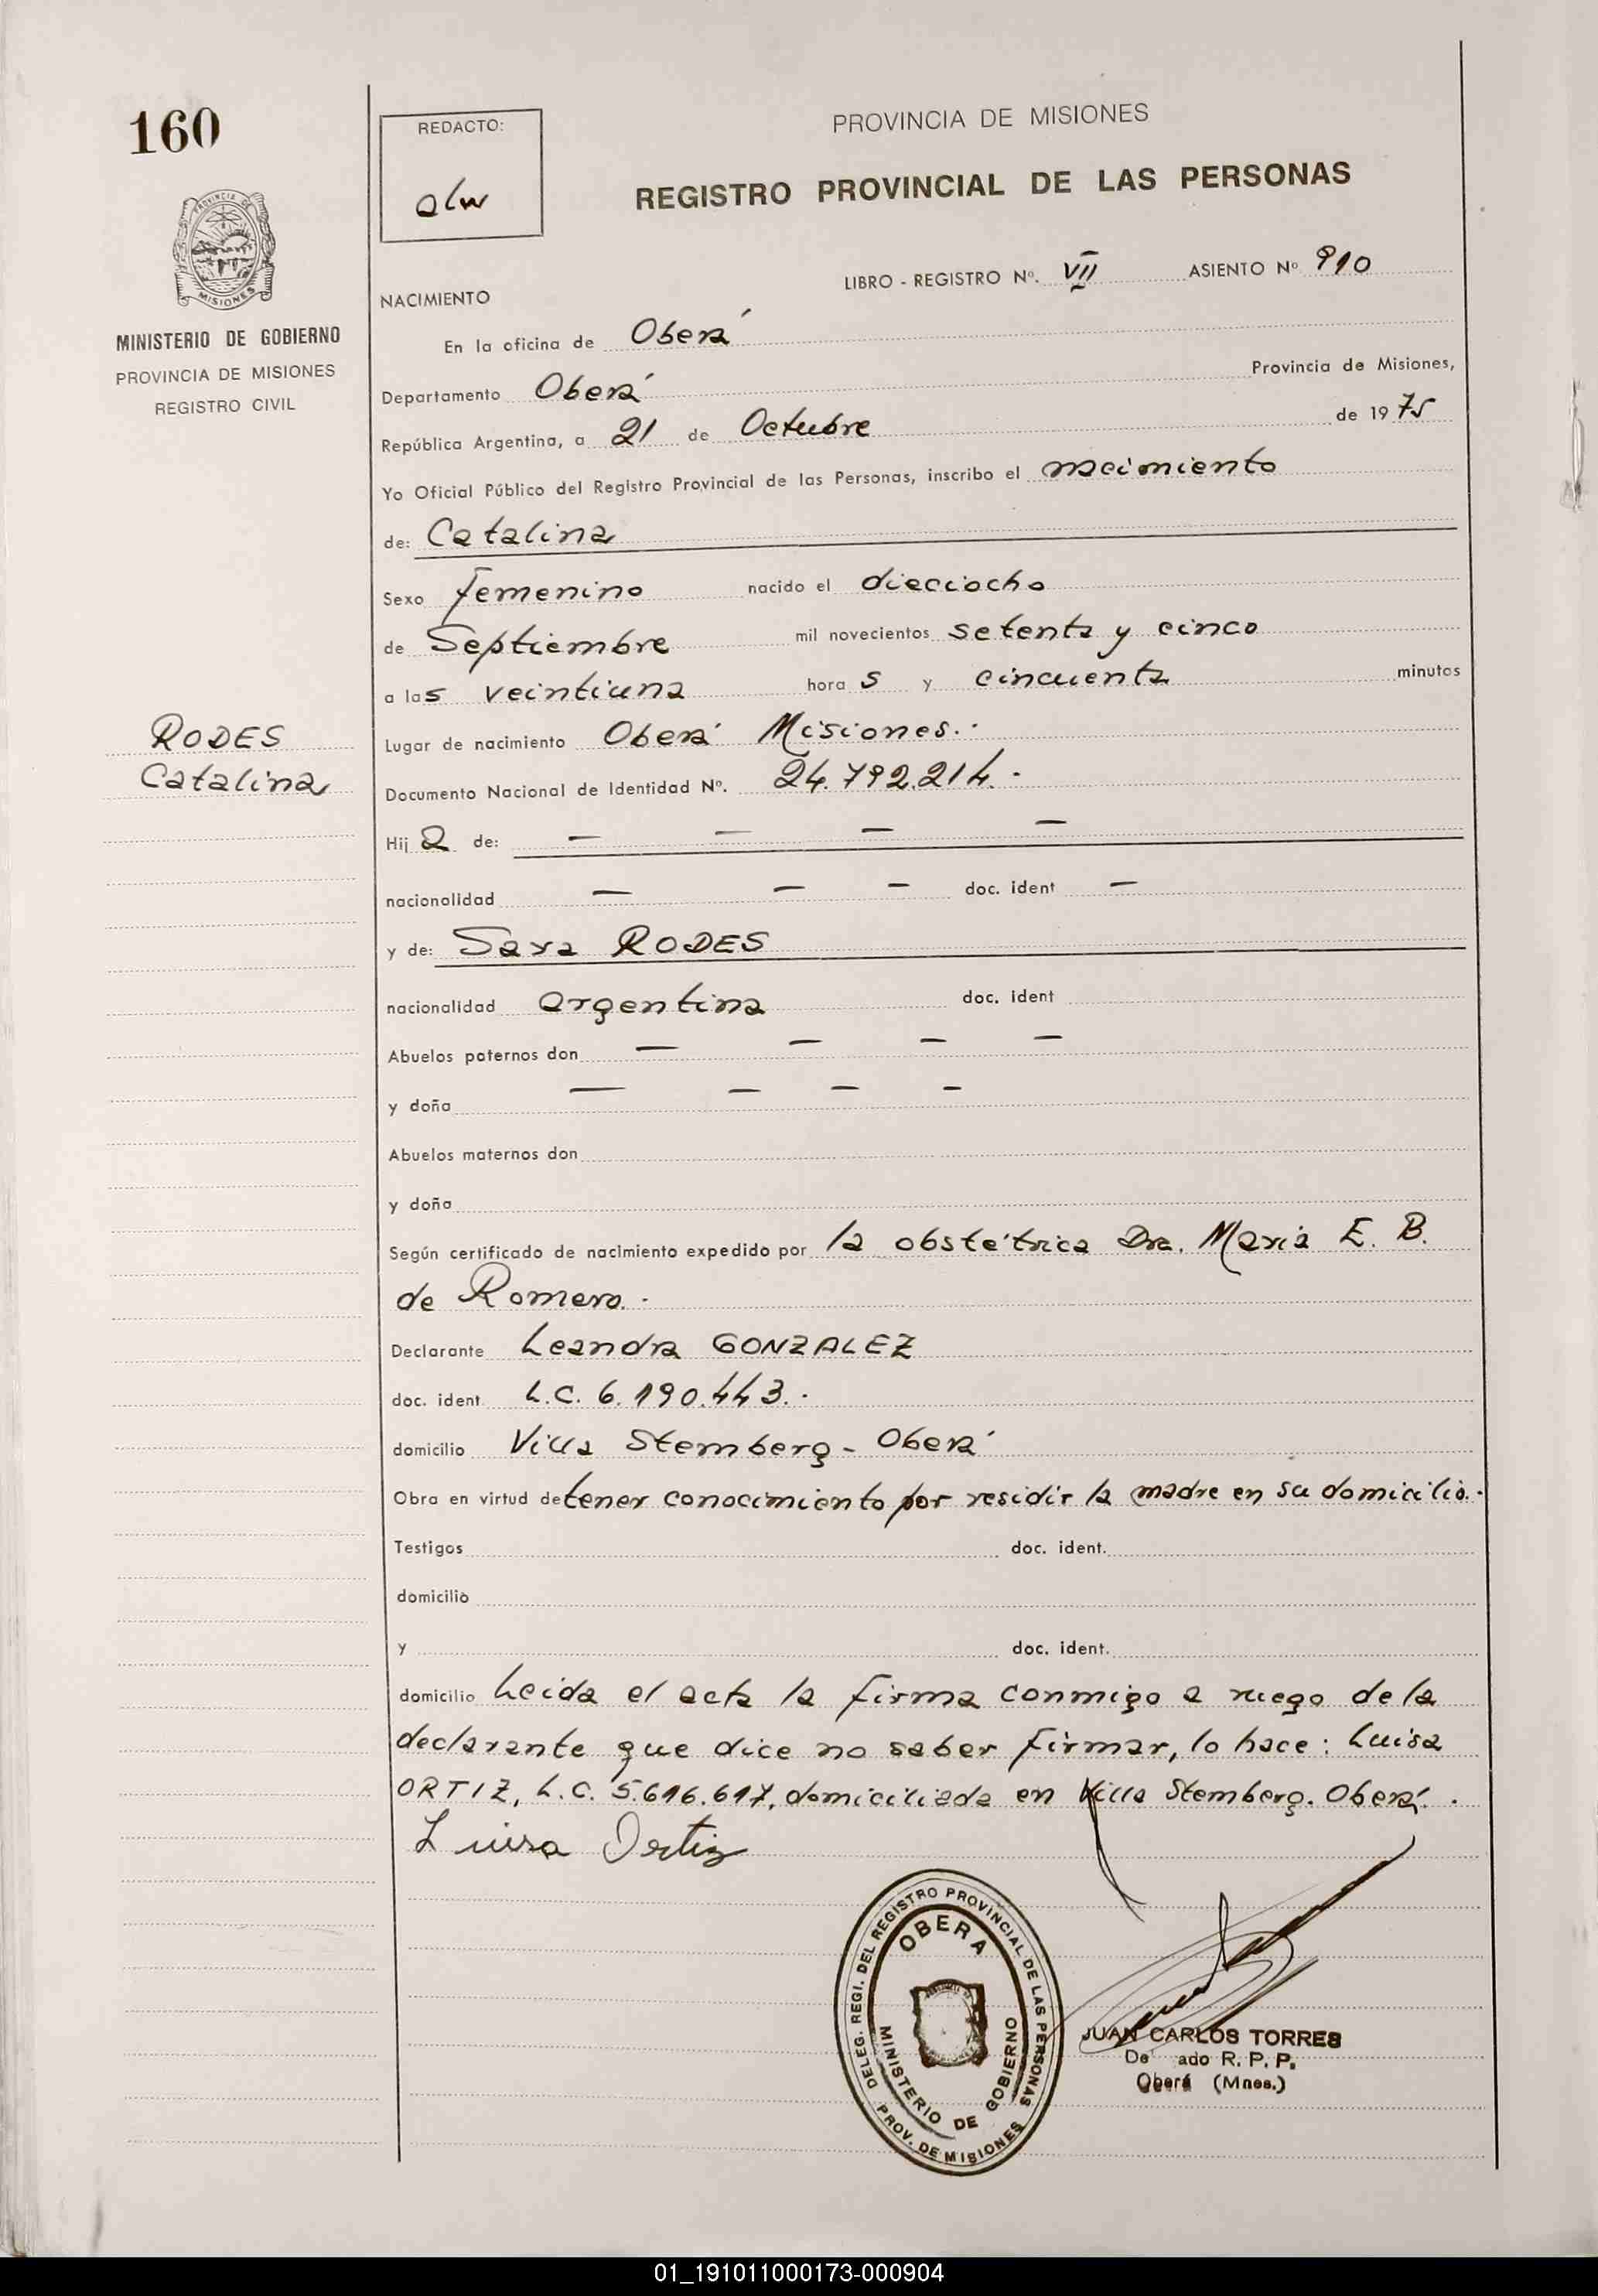 160
REDACTO:
PROVINCIA DE MISIONES
REGISTRO PROVINCIAL DE LAS PERSONAS
PROVINCIA DE
MISIONES
MINISTERIO DE GOBIERNO
PROVINCIA DE MISIONES
REGISTRO CIVIL
LIBRO - REGISTRO Nº. VII ASIENTO Nº 910
NACIMIENTO
En la oficina de Oberá
Departamento Oberá Provincia de Misiones,
República Argentina, a 21 de Octubre de 1975
Yo Oficial Público del Registro Provincial de las Personas, inscribo el nacimiento
de: Catalina
Sexo femenino nacido el dieciocho
de Septiembre mil novecientos setenta y cinco
a las veintiuna horas y cincuenta minutos
RODES
Catalina
Lugar de nacimiento Oberá Misiones.
Documento Nacional de Identidad Nº. 24.792.214.-
Hija de: — — — —
nacionalidad — — — doc. ident —
y de: Sara RODES
nacionalidad argentina doc. ident
Abuelos paternos don — — — —
y doña — — — —
Abuelos maternos don
y doña
Según certificado de nacimiento expedido por la obstétrica Dra. Maria E. B.
de Romero.-
Declarante Leandra GONZALEZ
doc. ident L.C. 6.190.443.-
domicilio Villa Stemberg - Oberá
Obra en virtud de tener conocimiento por residir la madre en su domicilio.-
Testigos doc. ident.
domicilio
y doc. ident.
domicilio Leida el acta la firma conmigo a ruego de la
declarante que dice no saber firmar, lo hace: Luisa
ORTIZ, L.C. 5.616.617, domiciliada en Villa Stemberg. Oberá.-
Luisa Ortiz
DELEG. REGI. DEL REGISTRO PROVINCIAL DE LAS PERSONAS
OBERA
MINISTERIO DE GOBIERNO
PROV. DE MISIONES
JUAN CARLOS TORRES
De ado R. P. P.
Oberá (Mnes.)
01_191011000173-000904